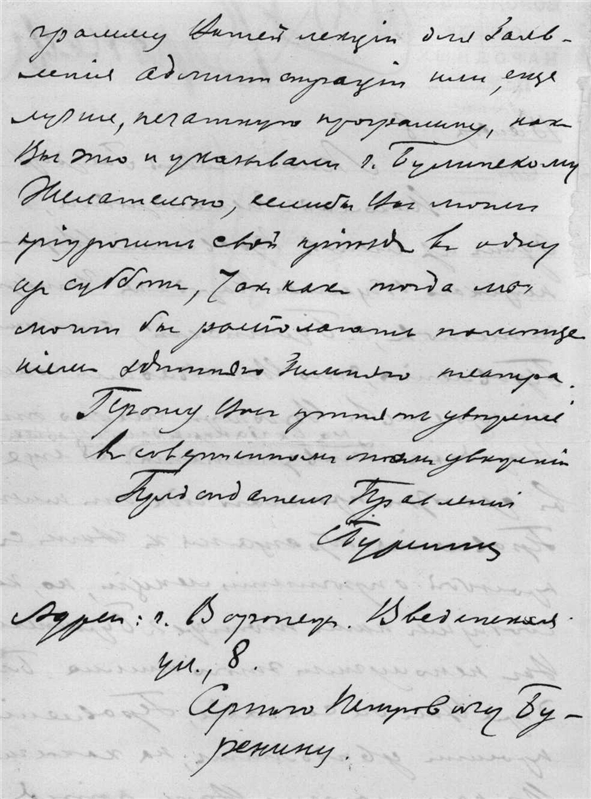 грамму Вашей лекціи для заяв-
ленія администраціи или, еще
лучше, печатную программу, как
Вы это и указывали г.
Желательно, еслибы Вы могли
пріурочить свой пріѣзд к одну
из суббот, так как тогда мы
могли бы располагать помѣще
ніем здѣшняго Зимняго театра.
Прошу Вас принять увѣреніе
в совершенном
Предсѣдатель Правленія
Буренин
Адрес: г. Воронеж. Введенская
ул., 8.
Сергею Петровичу Бу-
ренину.